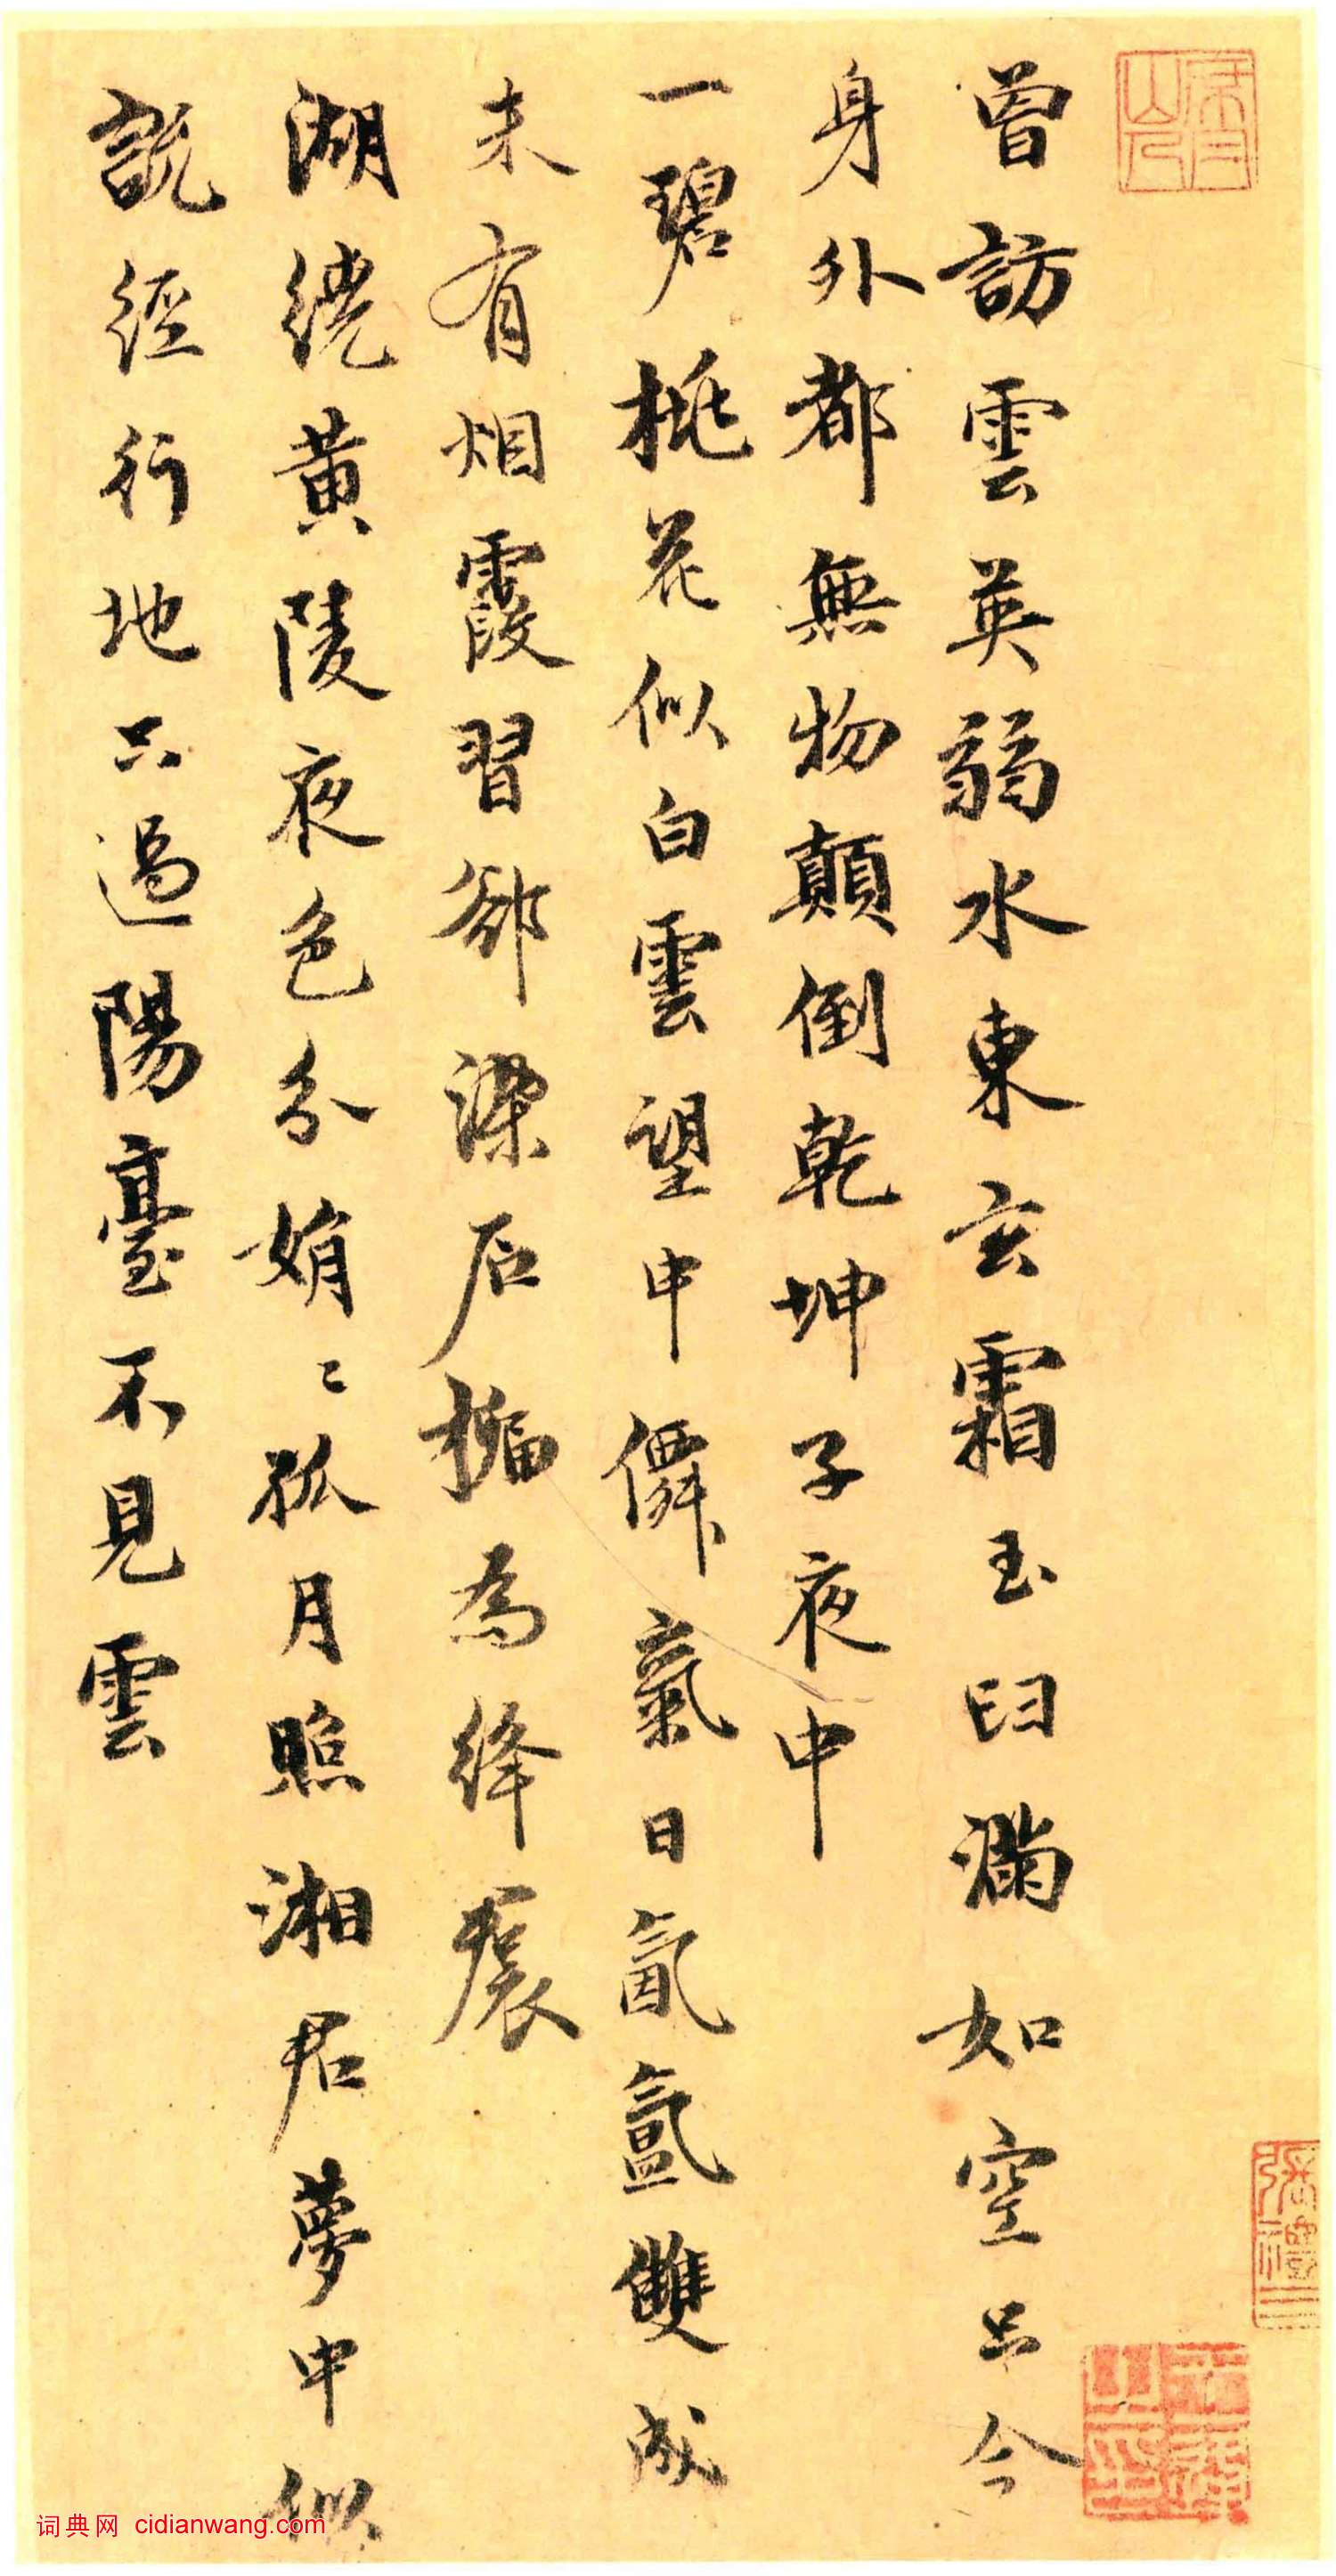 曾訪雲英弱水東玄霜玉臼濿如空只今
身外都無物顛倒乾坤子夜中
一碧桃花似白雲望中僊氣日氤氳雙成
未有烟霞習郤染石榴為絳裠
湖繞黄陵夜色分娟〻孤月照湘君夢中似
說經行地只過陽臺不見雲
張禮三
詞典网 cidianwang.com